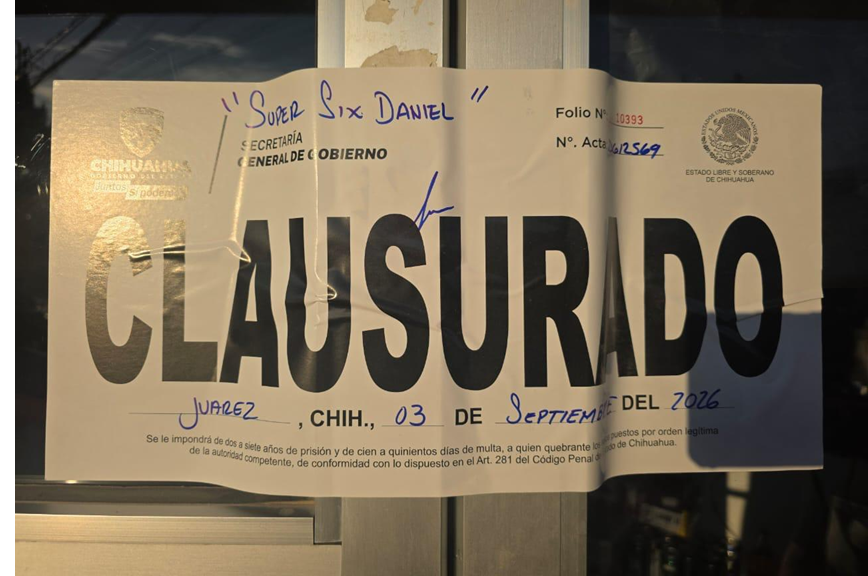 "SUPER SIX DANIEL"
SECRETARÍA
GENERAL DE GOBIERNO
Folio N° 10393
N°. Acta 2569
CHIHUAHUA
Juntos Sí podemos
ESTADOS UNIDOS MEXICANOS
ESTADO LIBRE Y SOBERANO
DE CHIHUAHUA
CLAUSURADO
JUAREZ, CHIH., 03 DE SEPTIEMBRE DEL 2026
Se le impondrá de dos a siete años de prisión y de cien a quinientos días de multa, a quien quebrante los puestos por orden legítima
de la autoridad competente, de conformidad con lo dispuesto en el Art. 281 del Código Penal de Chihuahua.